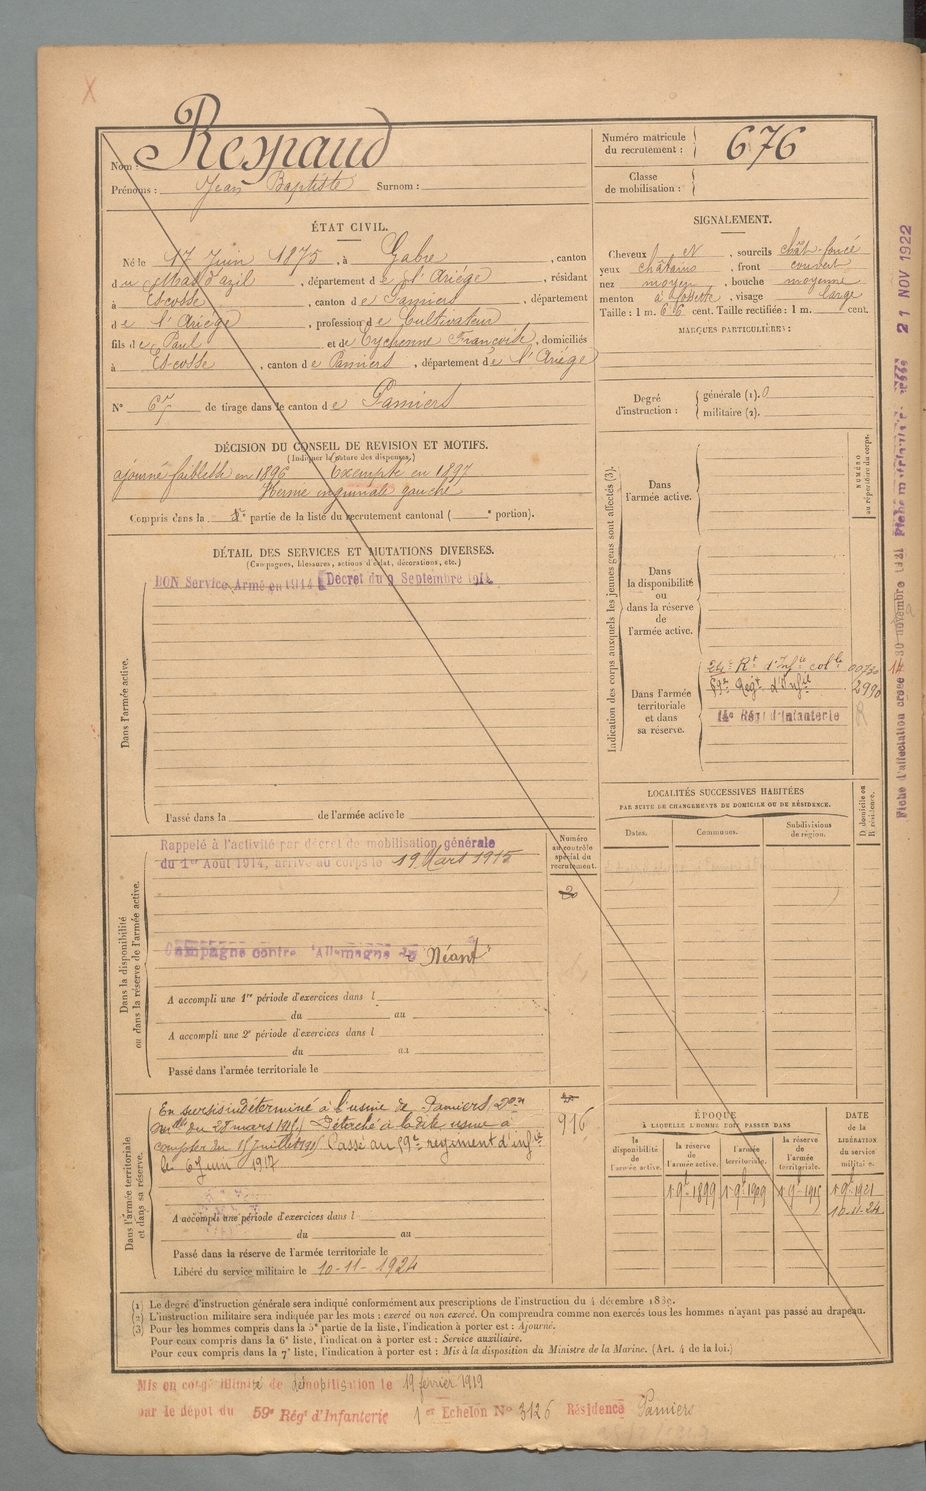 Respaud
Nom :
Prénoms : Jean Baptiste Surnom :
Numéro matricule du recrutement : 676
Classe de mobilisation :
ÉTAT CIVIL.
Né le 17 Juin 1875, à Gabre, canton
du Mas d'azil, département de l'Ariège, résidant
à Escosse, canton de Pamiers, département
de l'Ariège, profession de Cultivateur
fils de Paul et de Eychenne Françoise, domiciliés
à Escosse, canton de Pamiers, département de l'Ariège
N° 67 de tirage dans le canton de Pamiers
SIGNALEMENT.
Cheveux et N, sourcils chât-foncé
yeux châtains, front couvert
nez moyen, bouche moyenne
menton à fossette, visage large
Taille : 1 m. 616 cent. Taille rectifiée : 1 m. cent.
MARQUES PARTICULIÈRES :
Degré d'instruction : générale (1). 0
militaire (2).
DÉCISION DU CONSEIL DE REVISION ET MOTIFS.
(Indiquer la nature des dispenses.)
ajourné faiblesse en 1896 Exempté en 1897
Hernie inguinale gauche
Compris dans la partie de la liste du recrutement cantonal ( e portion).
DÉTAIL DES SERVICES ET MUTATIONS DIVERSES.
(Campagnes, blessures, actions d'éclat, décorations, etc.)
BON Service Armé en 1914 Décret du 9 Septembre 1914
Dans l'armée active.
Passé dans la de l'armée active le
Indication des corps auxquels les jeunes gens sont affectés (3).
NUMÉRO au répertoire du corps.
Dans l'armée active.
Dans la disponibilité ou dans la réserve de l'armée active.
Dans l'armée territoriale et dans sa réserve.
24e Rt d'Infie colle
59e Regt d'Infie 2990
14e Régt d'Infanterie
LOCALITÉS SUCCESSIVES HABITÉES
PAR SUITE DE CHANGEMENTS DE DOMICILE OU DE RÉSIDENCE.
Dates. Communes. Subdivisions de région.
D domicile ou R résidence.
Numéro au contrôle spécial du recrutement.
Dans la disponibilité ou dans la réserve de l'armée active.
Rappelé à l'activité par décret de mobilisation générale
du 1er Aout 1914, arrivé au corps le 19 Mars 1915
Campagne contre l'Allemagne Néant
A accompli une 1re période d'exercices dans l
du au
A accompli une 2e période d'exercices dans l
du au
Passé dans l'armée territoriale le
Dans l'armée territoriale et dans sa réserve.
En sursis indéterminé à l'usine de Pamiers Don
Mlle du 28 mars 1915 Détaché à la dite usine à
compter du 15 juillet 1915 Passé au 59e régiment d'infie
le 6 Juin 1917
916
A accompli une période d'exercices dans l
du au
Passé dans la réserve de l'armée territoriale le
Libéré du service militaire le 10-11-1924
ÉPOQUE
À LAQUELLE L'HOMME DOIT PASSER DANS
la disponibilité de l'armée active.
la réserve de l'armée active.
l'armée territoriale.
la réserve de l'armée territoriale.
DATE de la LIBÉRATION du service militaire.
1 9e 1899 1 9e 1909 1 9e 1915 1 9e 1921
10-11-24
(1) Le degré d'instruction générale sera indiqué conformément aux prescriptions de l'instruction du 4 décembre
(2) L'instruction militaire sera indiquée par les mots : exercé ou non exercé. On comprendra comme non exercés tous les hommes n'ayant pas passé au drapeau.
(3) Pour les hommes compris dans la 5e partie de la liste, l'indication à porter est : Ajourné.
Pour ceux compris dans la 6e liste, l'indication à porter est : Service auxiliaire.
Pour ceux compris dans la 7e liste, l'indication à porter est : Mis à la disposition du Ministre de la Marine. (Art. 4 de la loi.)
Mis en congé illimité de démobilisation le 19 février 1919
par le dépôt du 59e Régt d'Infanterie 1er Echelon N° 3126 Résidence Pamiers
Fiche d'affectation créée 30 novembre 1921
21 NOV 1922